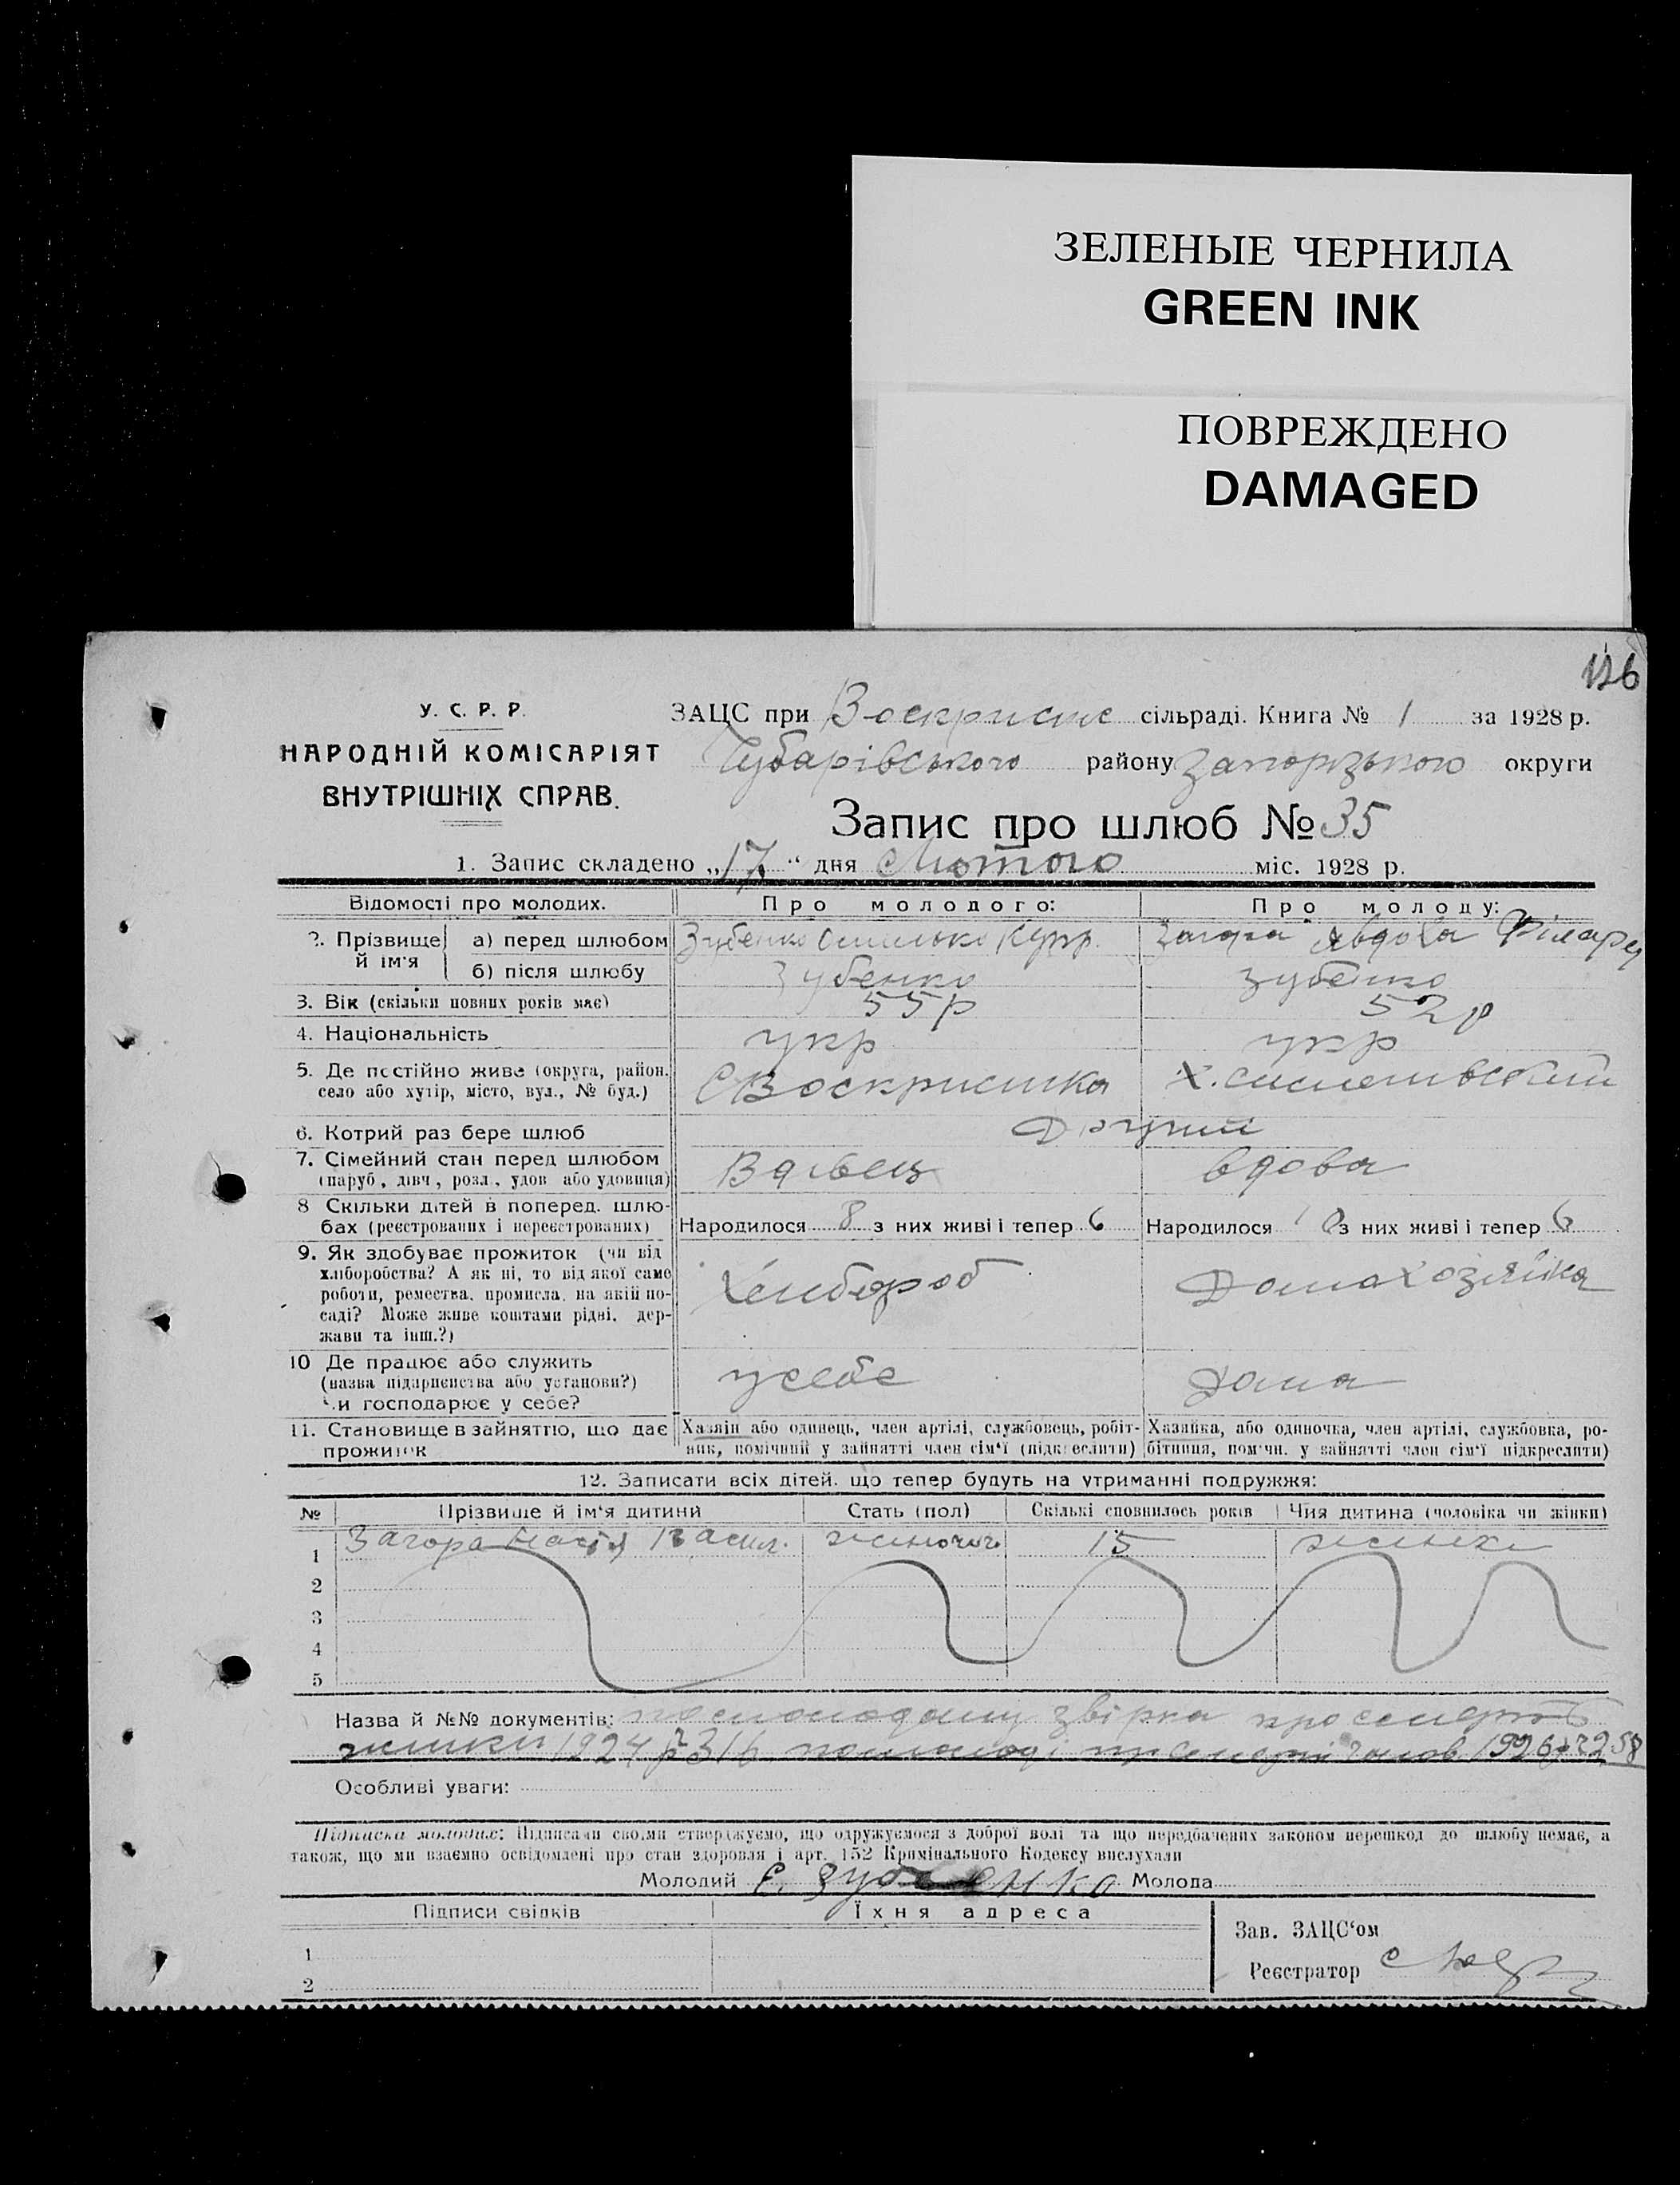 ЗЕЛЕНЫЕ ЧЕРНИЛА
GREEN INK
ПОВРЕЖДЕНО
DAMAGED
126
У. С. Р. Р.
НАРОДНІЙ КОМІСАРІЯТ
ВНУТРІШНІХ СПРАВ.
ЗАЦС при сільраді. Книга № 1 за 1928 р.
Чубарівського району Запорізького округи
Запис про шлюб № 35
1. Запис складено „17" дня Лютого міс. 1928 р.
Відомості про молодих. Про молодого: Про молоду:
2. Прізвище й ім'я а) перед шлюбом Зубенко Купр. Загора Явдоха Філарет
б) після шлюбу Зубенко Зубенко
3. Вік (скільки повних років має) 55 р 52 р
4. Національність укр укр
5. Де постійно живе (округа, район.
село або хутір, місто, вул., № буд.) С Воскрисинка Х.
6. Котрий раз бере шлюб Другий
7. Сімейний стан перед шлюбом
(паруб, дівч, розл., удов або удовиця) Вдівець вдова
8 Скільки дітей в поперед. шлю-
бах (реєстрованих і нереєстрованих) Народилося 8 з них живі і тепер 6 Народилося з них живі і тепер 6
9. Як здобуває прожиток (чи від
хліборобства? А як ні, то від якої саме
роботи, ремества, промисла, на якій по-
саді? Може живе коштами рідні, дер-
жави та інш.?) Хлибороб Домахозяйка
10 Де працює або служить
(назва підприємства або установи?)
Чи господарює у себе? у себе Дома
11. Становище в зайняттю, що дає
прожиток
Хазяін або одинець, член артілі, службовець, робіт-
ник, помічний у зайнятті член сім'ї (підкреслити)
Хазяйка, або одиночка, член артілі, службовка, ро-
бітниця, помічн. у зайнятті член сім'ї підкреслити)
12. Записати всіх дітей, що тепер будуть на утриманні подружжя:
№ Прізвище й ім'я дитини Стать (пол) Скількі сповнилось років Чия дитина (чоловіка чи жінки)
1 Загора Настя Васил. жиноча 15 жинки
2
3
4
5
Назва й №№ документів: звірка про
жинки 1924 р 316
Особливі уваги:
Підписка молодих: Підписами своіми стверджуємо, що одружуємося з доброї волі та що передбачених законом перешкод до шлюбу немає, а
також, що ми взаємно освідомлені про стан здоровля і арт. 152 Кримінального Кодексу вислухали
Молодий Є. Зубенко Молода
Підписи свідків Їхня адреса
Зав. ЗАЦС'ом
1
Реєстратор
2